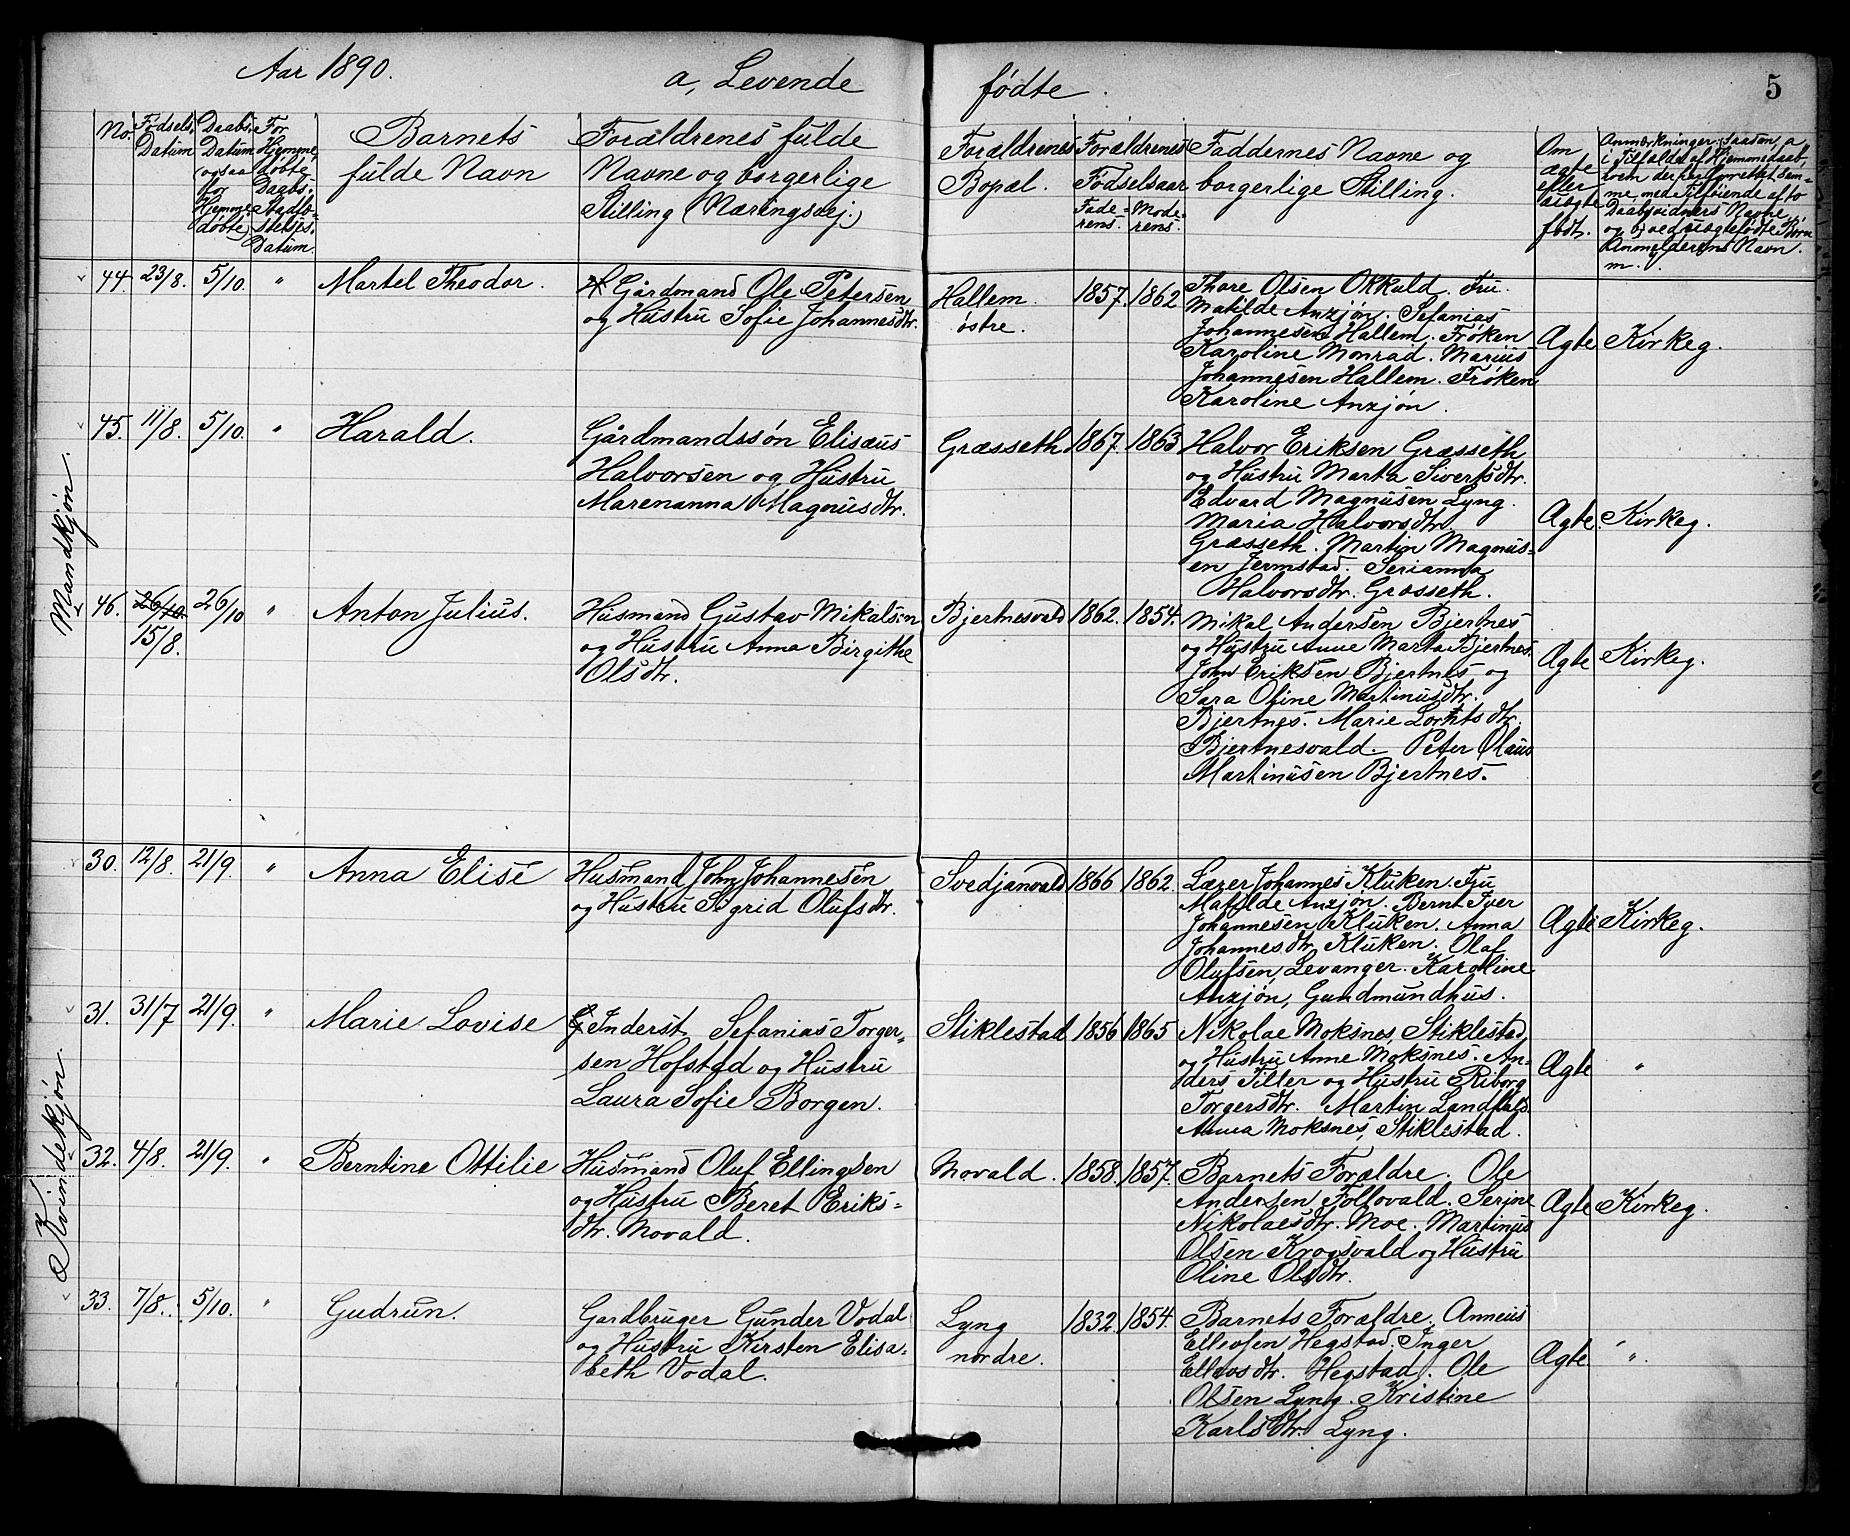 Aar 1890.
a, Levende fødte.
5
No.
Fødsels-
Datum
Daabs-
Datum
(ogsaa
for
Hjemme-
døbte)
For
Hjemme-
døbte
Daabs-
Stadfæ-
stelses-
Datum.
Barnets
fulde Navn
Forældrenes fulde
Navne og borgerlige
Stilling (Næringsvej.)
Forældrenes
Bopæl.
Forældrenes
Fødselsaar
Fade-
rens.
Mode-
rens.
Faddernes Navne og
borgerlige Stilling.
Om
ægte
eller
uægte
født.
Anmærkninger: Saasom, a
i Tilfælde af Hjemmedaab,
hvem der har forrettet sam-
me, med Tilføiende af to
Daabsvidners Navne,
og b, ved uægtefødte Børn
Anmelderens Navn.
m.
Mandkjøn.
44. 23/8. 5/10. " Martel Theodor.
Gårdmand Ole Petersen
og Hustru Sofie Johannesdtr.
Hallem
østre.
1857. 1862
Thore Olsen Okkuld. Fru.
Matilde Anzjøn. Sefanias
Johannesen Hallem. Frøken
Karoline Monrad. Marius
Johannesen Hallem. Frøken
Karoline Anzjøn.
Ægte Kirkeg.
45. 11/8. 5/10. " Harald.
Gårdmandssøn Elisæus
Halvorsen og Hustru
Marenanna Magnusdtr.
Græsseth 1867. 1863
Halvor Eriksen Græsseth
og Hustru Marta Sivertsdtr.
Edvard Magnusen Lyng.
Maria Halvorsdtr.
Græsseth. Martin Magnus-
en Jermstad. Serianna
Halvorsdtr. Græsseth.
Ægte. Kirkeg.
46. 26/10. 26/10 " Anton Julius.
15/8.
Husmand Gustav Mikalsen
og Hustru Anna Birgithe
Olsdtr.
Bjertnesvald 1862. 1854.
Mikal Andersen Bjertnes
og Hustru Anne Marta Bjertnes.
John Eriksen Bjertnes og
Sara Oline Martinusdtr.
Bjertnes. Marie Lorntsdtr.
Bjertnesvald. Peter Olaus
Martinusen Bjertnes.
Ægte Kirkeg.
Kvindekjøn.
30. 12/8. 21/9. " Anna Elise
Husmand John Johannesen
og Hustru Sigrid Olufsdtr.
Svedjanvald 1866 1862.
Lærer Johannes Kluken. Fru
Matilde Anzjøn. Bernt Iver
Johannesen Kluken. Anna
Johannesdtr. Kluken. Olaf
Olufsen, Levanger. Karoline
Anzjøn, Gundmundhus.
Ægte Kirkeg.
31. 31/7 21/9. " Marie Lovise
Inderst Sefanias Torger-
sen Hofstad og Hustru
Laura Sofie Borgen.
Stiklestad 1856 1865
Nikolae Moksnes, Stiklestad
og Hustru Anne Moksnes. An-
ders Tiller og Hustru Riborg
Torgersdtr. Martin Landfald.
Anna Moksnes, Stiklestad.
Ægte "
32. 4/8. 21/9. " Berntine Ottilie
Husmand Oluf Ellingsen
og Hustru Beret Eriks-
dtr. Movald.
Movald. 1858. 1857.
Barnets Forældre. Ole
Andersen Follovald. Serine
Nikolaesdtr. Moe. Martinus
Olsen Krogsvald og Hustru
Oline Olsdtr.
Ægte Kirkeg.
33. 7/8. 5/10. " Gudrun.
Gardbruger Gunder Vodal
og Hustru Kirsten Elisa-
beth Vodal.
Lyng
nordre.
1832. 1854.
Barnets Forældre. Anneus
Ellevsen Hegstad. Inger
Ellevsdtr. Hegstad. Ole
Olsen Lyng. Kristine
Karlsdtr. Lyng.
Ægte "